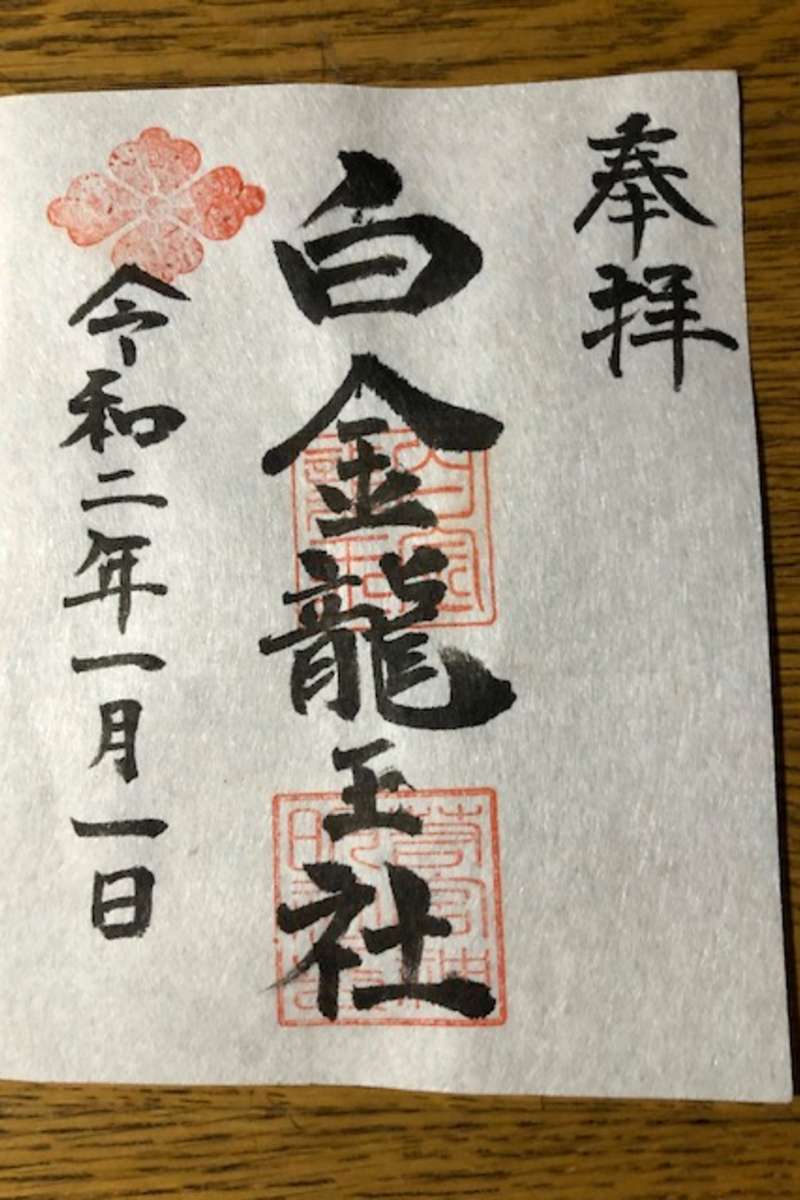 奉拝
白金龍王社
令和二年一月一日